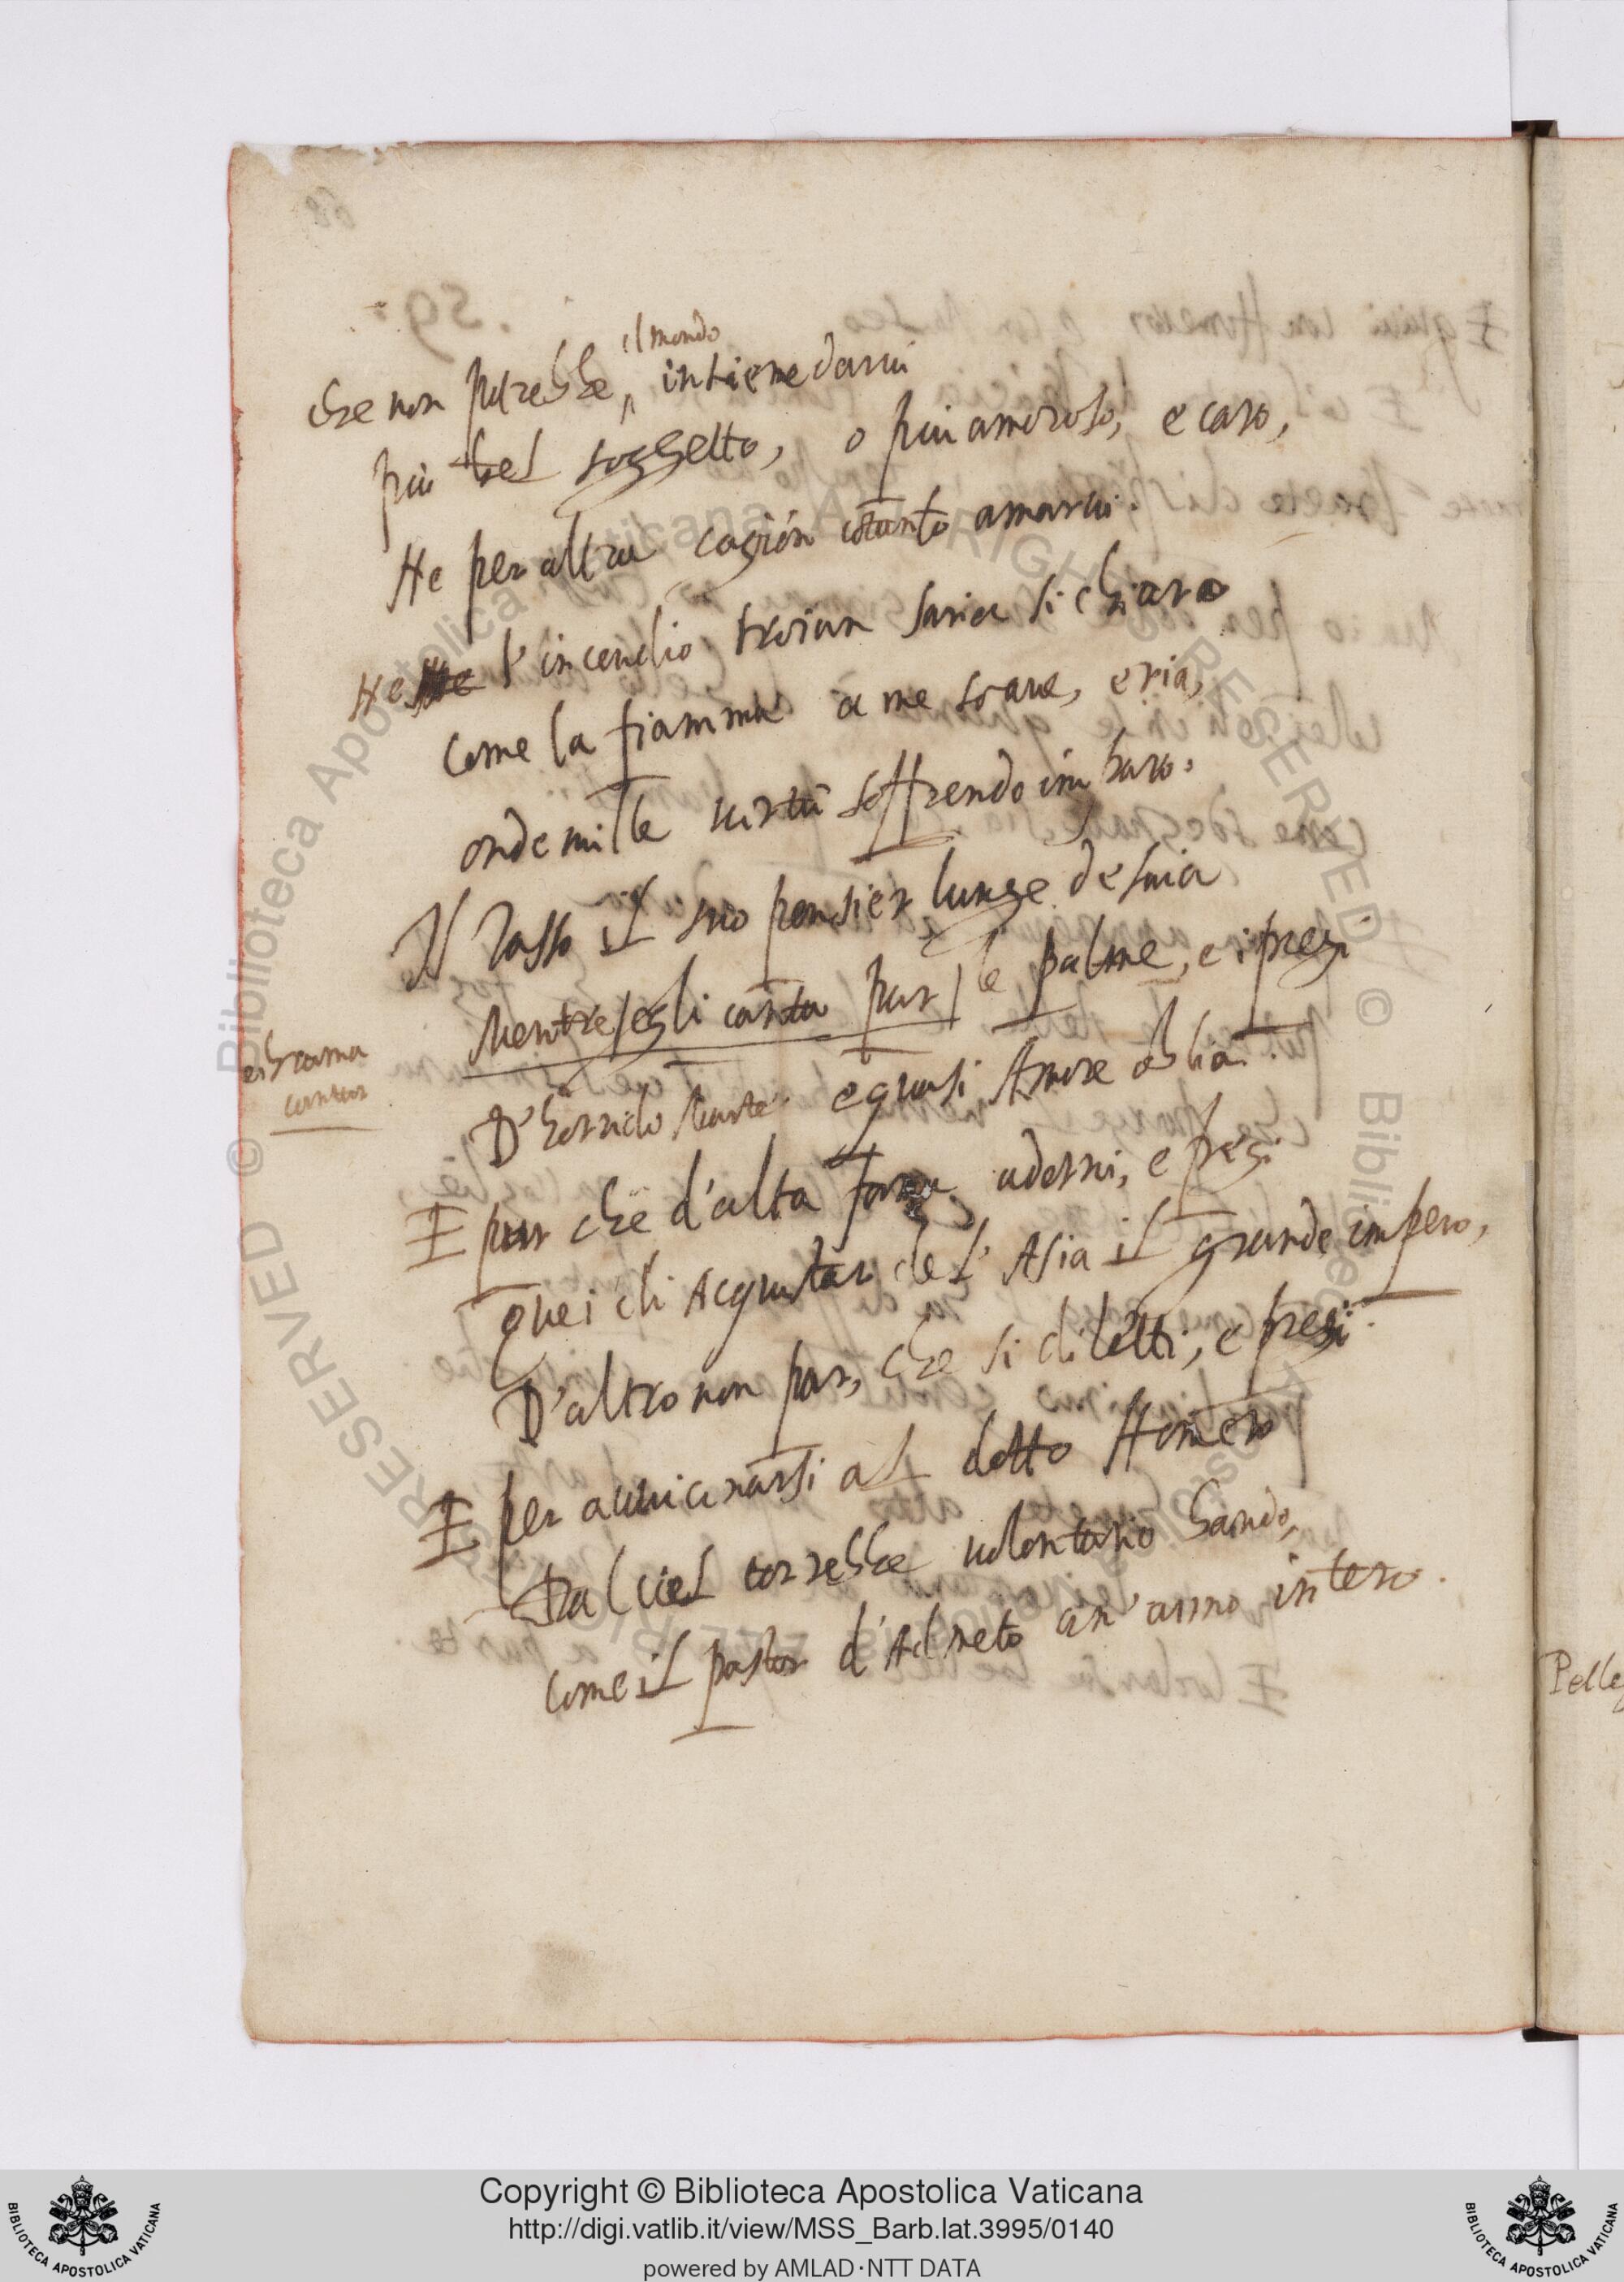 il mondo
che non potrebbe ^ insieme darui
più bel soggetto, o più amoroso, e caro,
Ne per altra cagion cotanto amarui.
Ne l'incendio troian saria si chiaro
Come la fiamma à me soaue, e ria,
onde mille uirtù soffrendo imparo.
Il Tasso il suo pensier lunge desuia
Mentre egli canta pur le palme, e i pregi
e brama
cantar
D'horrido Marte e quasi Amore oblia.
E pur che d'alta fama adorni, e fregi
Quei di Acquistar de l'Asia il grande impero,
D'altro non par, che si diletti, e pregi.
E per auuicinarsi al dotto Homero
Dal ciel torrebbe uolontario bando,
Come il pastor d'Admeto un'anno intero.
Copyright © Biblioteca Apostolica Vaticana
http://digi.vatlib.it/view/MSS_Barb.lat.3995/0140
powered by AMLAD·NTT DATA
BIBLIOTECA APOSTOLICA VATICANA
BIBLIOTECA APOSTOLICA VATICANA